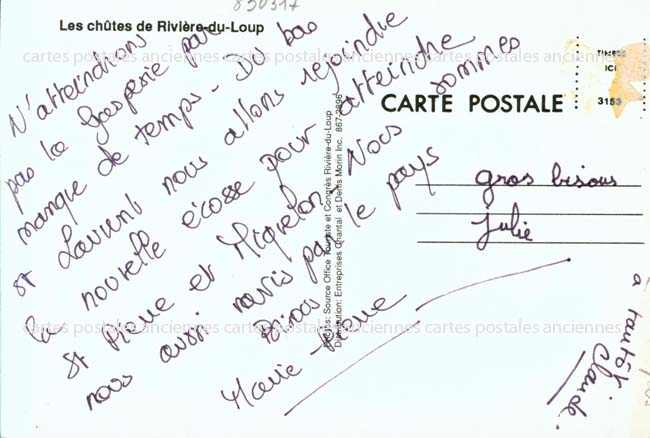 830317
Les chûtes de Rivière-du-Loup
N'atteindrions
pas la Gaspesie par
manque de temps - Du bas
st Laurent nous allons rejoindre
la nouvelle écosse pour atteindre
st Pierre et Miquelon. Nous sommes
nous aussi ravis par le pays
Bisous
Marie-Pierre
Source Office Touriste et Congrès Rivière-du-Loup
Distribution: Entreprises Chantal et Denis Morin Inc. 867-2896
CARTE POSTALE
TIMBRE
ICI
3153
gros bisous
Julie
a tantôt
Claude.
cartes postales anciennes cartes postales anciennes cartes postales anciennes cartes postales anciennes
cartes postales anciennes cartes postales anciennes cartes postales anciennes cartes postales anciennes